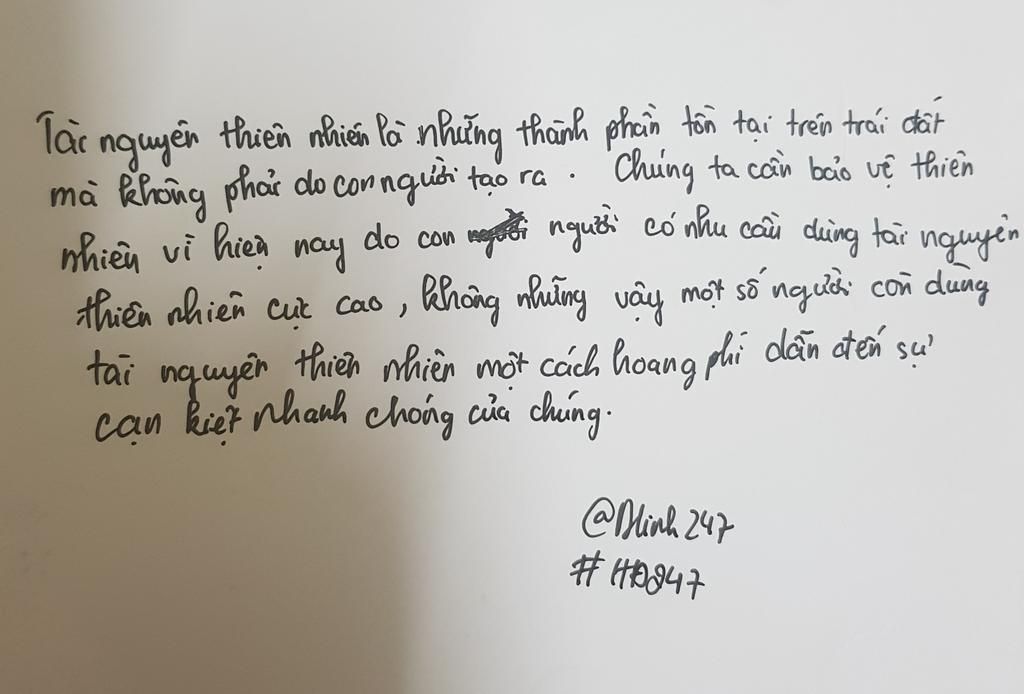 Tài nguyên thiên nhiên là những thành phần tồn tại trên trái đất
mà không phải do con người tạo ra. Chúng ta cần bảo vệ thiên
nhiên vì hiện nay do con người có nhu cầu dùng tài nguyên
thiên nhiên cực cao, không những vậy một số người còn dùng
tài nguyên thiên nhiên một cách hoang phí dẫn đến sự
cạn kiệt nhanh chóng của chúng.